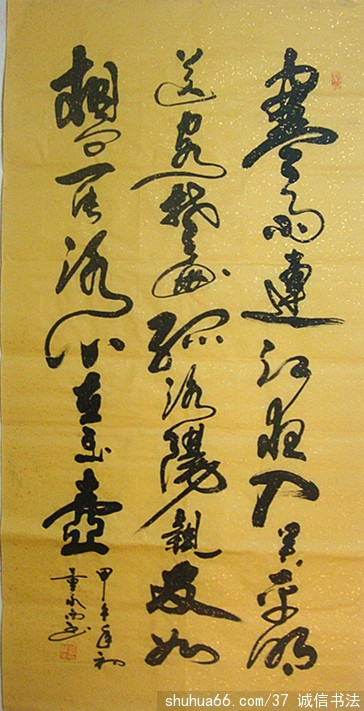 寒雨連江夜入吴平明
送客楚山孤洛陽親友如
相问一片冰心在玉壺
甲午年初
shuhua66.com/37 诚信书法